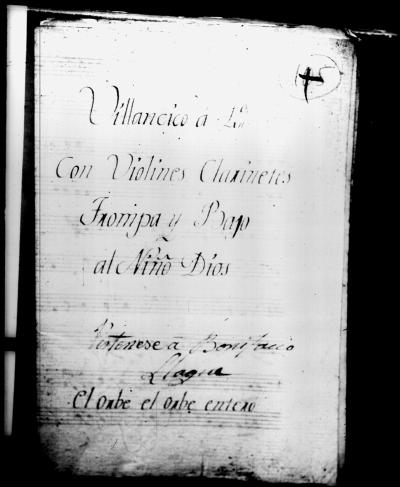 Villancico á
Con Violines Clarinetes
Trompa y Bajo
al Niño Dios
Pertenese á Bonifacio
Llaque
El orbe el orbe entero